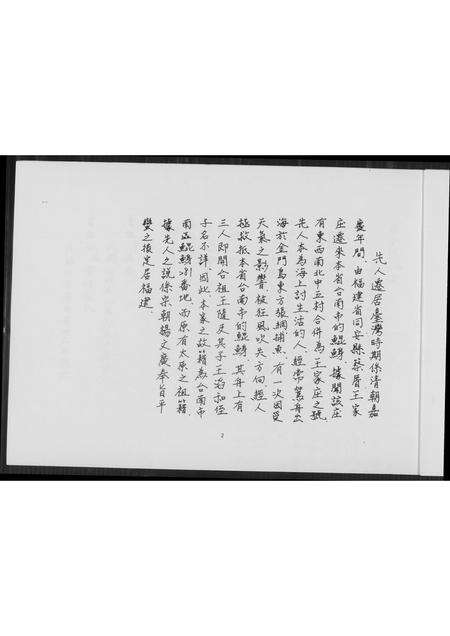 先人遷居臺灣時期係清朝嘉
慶年間，由福建省同安縣蔡厝王家
座遷來本省台南市的鯤鯓，據聞該座
有東西南北中五村合併為王家座之號
先人本為海上討生活的人，經常駕舟出
海於金門島東方張網捕魚，有一次因受
天氣之影響，被狂風吹失方向，經人
拯救抵本省台南市的鯤鯓，其舟上有
三人即開台祖王隆及其子王治和侄
子名不詳因此本家之故籍為台南市
南區鯤鯓31番地，而原有太原之祖籍
據先人之說係宋朝楊文廣奉旨平
蠻之後定居福建．
2